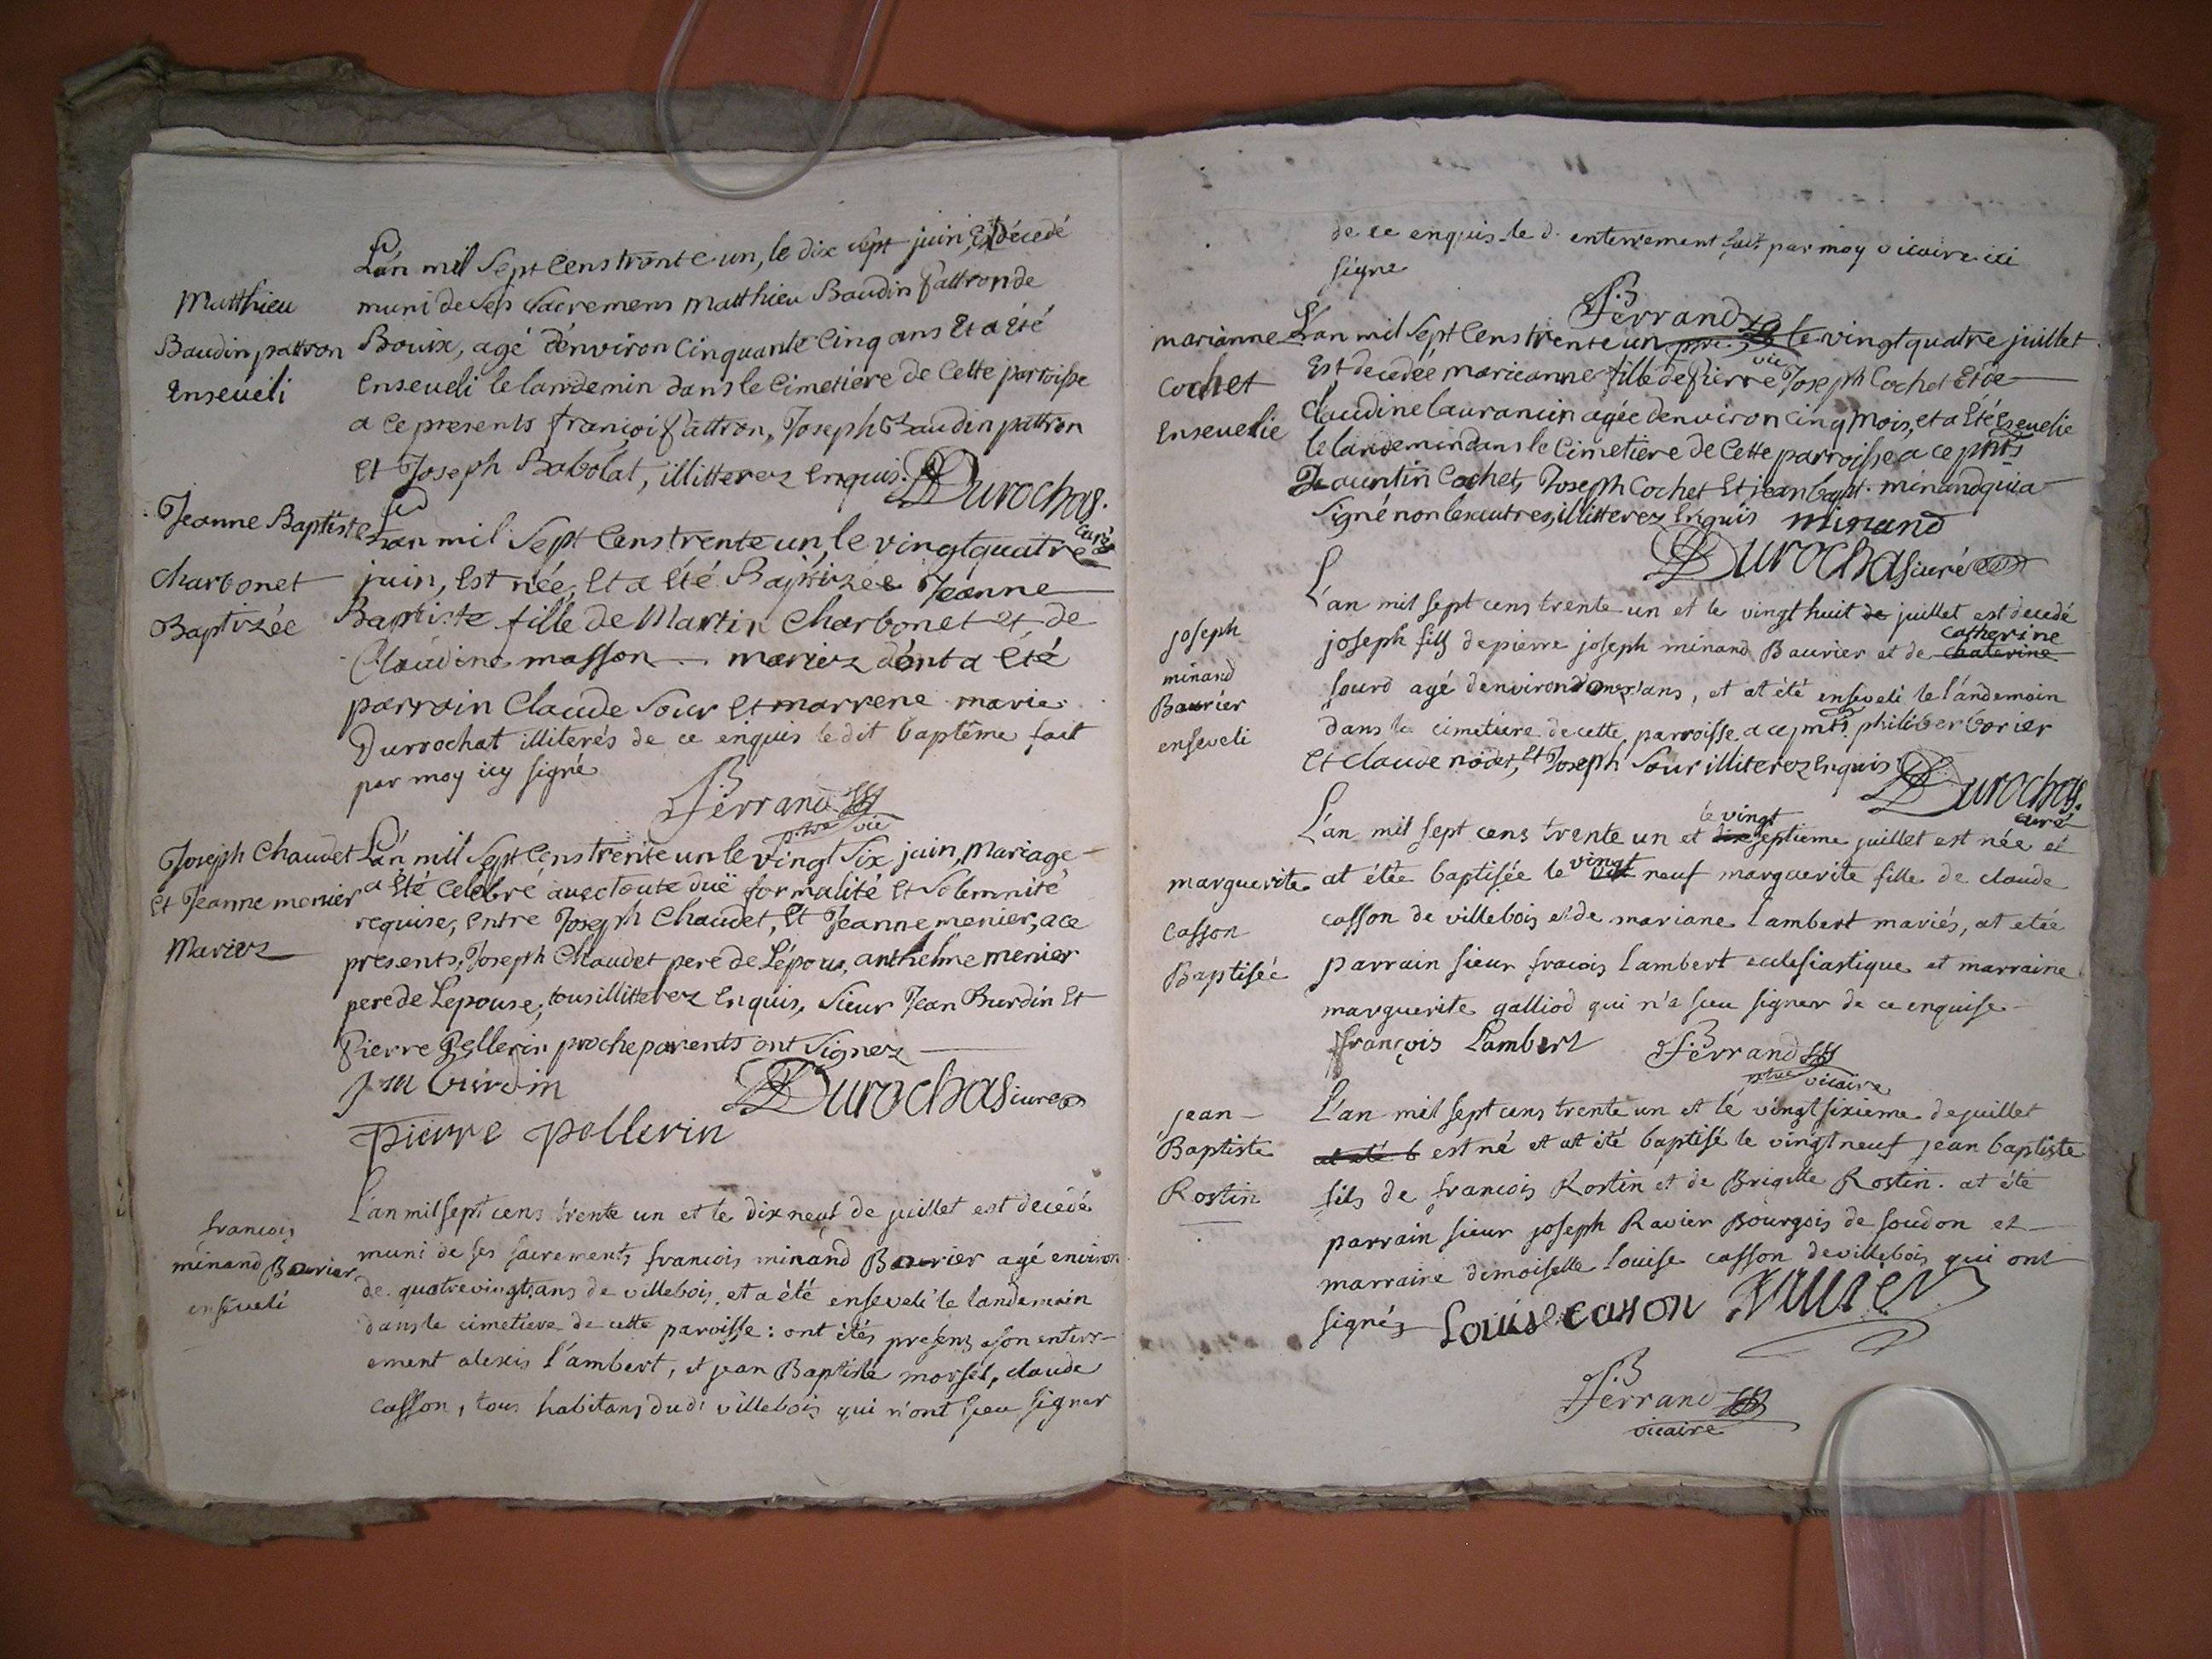 L'an mil sept cens trente un, le dix sept juin, Est décedé
Matthieu
muni de ses sacremens matthieu Baudin pattron de
Baudin pattron
Bouix, agé d'environ cinquante cinq ans Et a Eté
Enseveli
enseveli le landemin dans le cimetiere de cette parroisse
a ce presents françois pattron, Joseph Baudin pattron
et Joseph Babolat, illitterez Enquis. Durochas.
curé
Jeanne Baptiste
L'an mil sept cens trente un, le vingt quatre
charbonet
juin, Est née, Et a Eté Baptizée Jeanne
Baptizée
Baptiste fille de Martin Charbonet et de
Claudine masson mariez dont a Eté
parrain Claude Sour Et marrene marie
Durrochat illiterés de ce enquis le dit baptême fait
par moy icy signé
Ferrand
ptre vic
Joseph Chaudet
L'an mil sept cens trente un le vingt six juin, mariage
Et Jeanne menier
a Eté celebré avec toute duë formalité Et solemnité
Mariez
requise, entre Joseph Chaudet, Et Jeanne menier, a ce
presents, Joseph Chaudet pere de L'epous, anthelme menier
pere de L'epouse, tous illitterez Enquis, sieur Jean Burdin Et
Pierre Pellerin proche parents ont signez
burdin Durochas curé
pierre pellerin
L'an mil sept cens trente un et le dix neuf de juillet est decédé
francois
minand Bavrier
enseveli
muni de ses sacrements francois minand Bavrier agé environ
de quatrevingt ans de villebois, et a été enseveli le landemain
dans le cimetiere de cette paroisse : ont étés presens a son enterr-
ement alexis l'ambert, et jean Baptiste morsel, claude
casson, tous habitans dudt villebois qui n'ont sceu signer
de ce enquis. le d. enterrement fait par moy vicaire ici
signe
Ferrand
vic
marianne
L'an mil sept cens trente un le vingt quatre juillet
cochet
Est decedée marianne fille de Pierre Joseph Cochet Et de
Ensevelie
Claudine laurancin agée d'environ cinq mois, et a Eté Ensevelie
le landemin dans le cimetiere de cette parroisse a ce pnts
cochet, Joseph Cochet Et jean bapt. minand qui a
signé non les autres, illitterez Enquis minand
Durochas curé
L'an mil sept cens trente un et le vingt huit de juillet est decedé
joseph
minand
Bavrier
enseveli
joseph fils de pierre joseph minand Baurier et de chaterine catherine
sourd agé d'environ ans, et at été enseveli le l'andemain
dans le cimetiere de cette parroisse a ce pnts philiber borier
Et claude nodet, Et Joseph Sour illiterez Enquis Durochas.
curé
L'an mil sept cens trente un et dix le vingt septieme juillet est née et
marguerite
at étée baptisée le vingt neuf marguerite fille de claude
Casson
casson de villebois et de mariane lambert mariés, at etée
Baptisée
parrain sieur fracois lambert ecclesiastique et marraine
marguerite galliod qui n'a sceu signer de ce enquise
françois Lambert Ferrand
ptre vicaire
jean
L'an mil sept cens trente un et lé vingt sixieme de juillet
Baptiste
at eté b est né et at été baptisé le vingt neuf jean baptiste
Rostin
fils de francois Rostin et de Brigitte Rostin. at été
parrain sieur joseph Ravier Bourgois de soudon et
marraine dimoiselle louise casson de villebois qui ont
signés Louise casson Ravier
Ferrand
vicaire